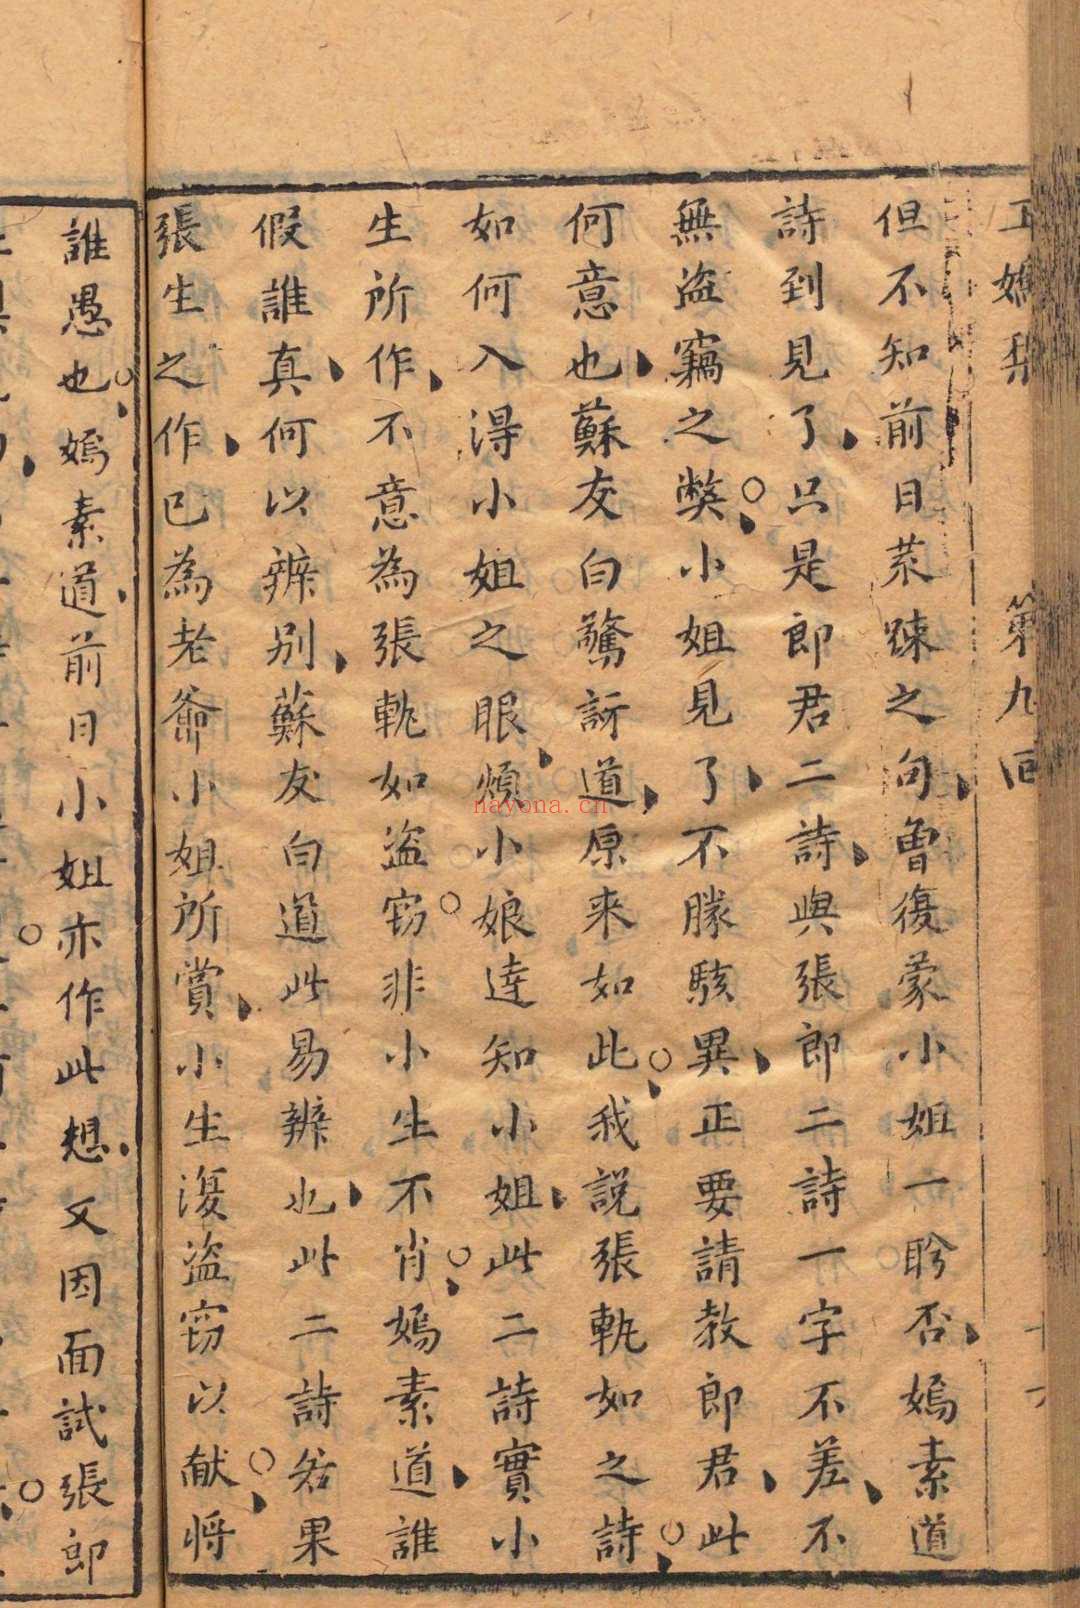 玉嬌梨 第九回 十六
但不知前日荒疎之句曾復蒙小姐一盻否嫣素道
詩到見了只是郎君二詩與張郎二詩一字不差不
無盜竊之獘小姐見了不勝駭異正要請教郎君此
何意也蘇友白驚訝道原来如此我說張軌如之詩
如何入得小姐之眼煩小娘達知小姐此二詩實小
生所作不意為張軌如盜窃非小生不肖嫣素道誰
假誰真何以辨别蘇友白道此易辨也此二詩若果
張生之作已為老爺小姐所賞小生復盜窃以献将
誰愚也嫣素道前日小姐亦作此想又因面試張郎
nayona.cn